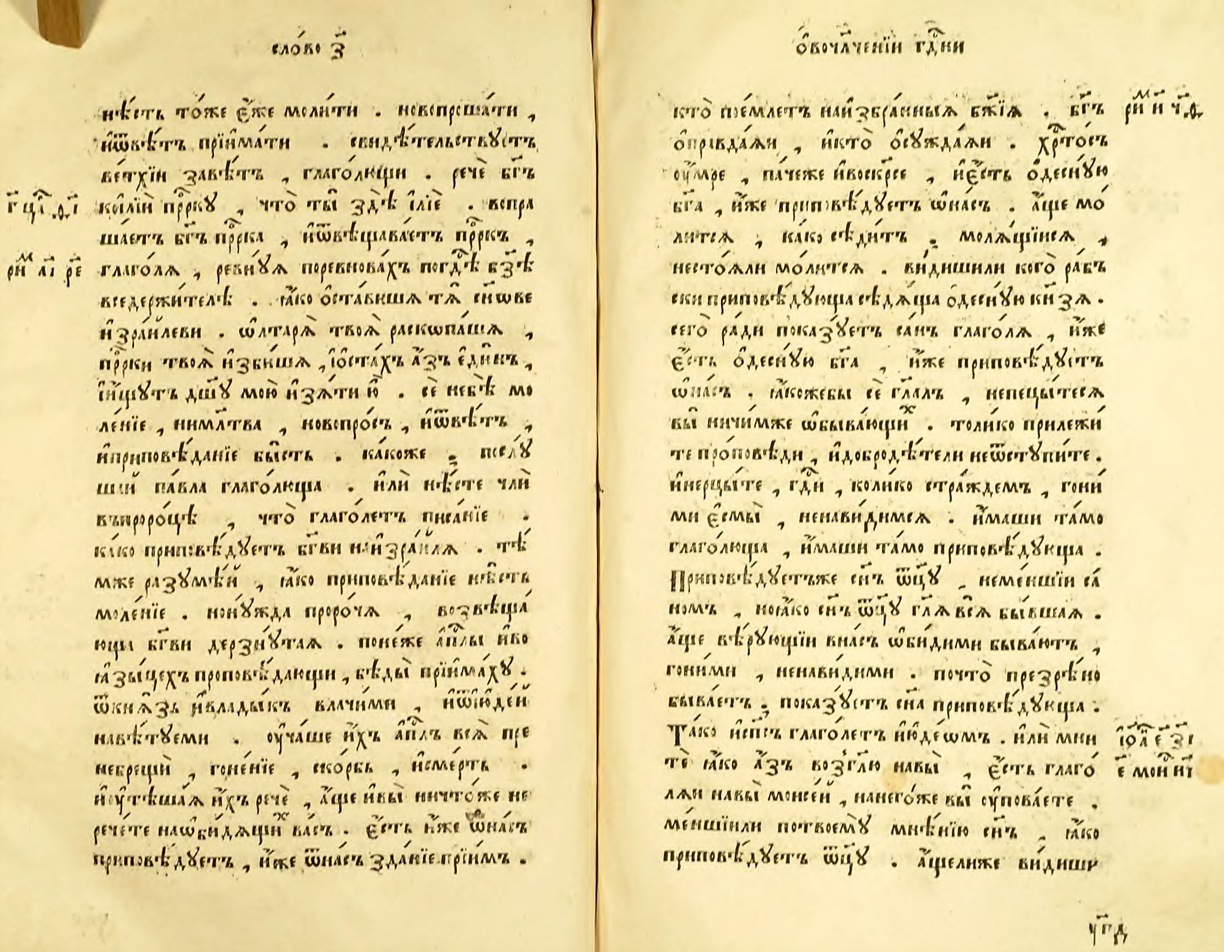 сло́во з҃
нѣ́сть то́же є҆́же моли́ти . новопроша́ти ,
и҆ѿвѣ́тъ прїи҆ма́ти . свидѣ́тельствꙋетъ
ве́тхїи завѣ́тъ , глаго́лющи . речѐ бг҃ъ
коилїѝ прⷪ҇ркꙋ , что̀ ты̀ здѣ̀ і҆лїѐ . вопра
ша́етъ бг҃ъ прⷪ҇рка , и҆ѿвѣщава́етъ прⷪ҇ркъ ,
г҃ цр҃ . ѳ҃і
глаго́лѧ , ревнꙋ́ѧ поревнова́хъ погдⷭ҇ѣ бз҃ѣ
ри҃ⷨ а҃і ре
вседержи́телѣ . ꙗ҆́ко ѻ҆ста́вишѧ тѧ̀ сн҃ове
и҆зра́илеви . ѡ҆лтарѧ̀ твоѧ̀ раскопа́шѧ ,
прⷪ҇рки твоѧ̀ и҆зби́шѧ , і҆ѻста́хъ а҆́зъ є҆ди́нъ ,
і҆и҆́щꙋтъ дш҃ꙋ мою̀ и҆зѧ́ти ю҆̀ . сѐ небѣ̀ мо
ле́нїе , нимл҃тва , новопро́съ , и҆ѿвѣ́тъ ,
и҆приповѣ́данїе бы́сть . ка́коже , послꙋ́
шай па́вла глаго́люща . и҆лѝ нѣ́сте члѝ
въпроро́цѣ , что̀ глаго́летъ писа́нїе .
ка́ко приповѣ́дꙋетъ бг҃ви наи҆зра́илѧ . тѣ́
мже разꙋмѣ́й , ꙗ҆́ко приповѣ́данїе нѣ́сть
моле́нїе . нонꙋ́жда проро́чѧ , возвѣща́
ющи бг҃ви дерзнꙋ́таѧ . поне́же а҆пⷭ҇лы и҆во
ꙗ҆зы́цехъ проповѣ́дающи , бѣды̀ прїи҆ма́хꙋ .
ѿкнѧ́зь и҆влады́къ влачи́ми , и҆ѿі҆ꙋде́й
навѣ́тꙋеми . ѹ҆ча́ше и҆́хъ а҆пⷭ҇лъ всѧ̀ пре
небрещѝ , гоне́нїе , ско́рбь , и҆сме́рть .
и҆ѹ҆тѣша́ѧ и҆́хъ речѐ , а҆́ще и҆вы̀ ничто́же не
рече́те наѡ҆би́дѧщиⷯ ва́съ . є҆́сть и҆́же ѡ҆на́съ
приповѣ́дꙋетъ , и҆́же ѿна́съ зда́нїе прїи́мъ .
ѻ҆вочл҃ченїи гдⷭ҇ни
кто̀ пое́млетъ наи҆збра́нныѧ бж҃їѧ . бг҃ъ
ри҃ⷨ и҃ ч҃ . д҃
ѻ҆правда́ѧи , и҆кто̀ ѻ҆сꙋжда́ѧи . хрⷭ҇то́съ
ѹ҆́мре , па́чеже и҆воскр҃се , и҆є҆́сть ѻ҆деснꙋ́ю
бг҃а , и҆́же приповѣ́дꙋетъ ѡ҆на́съ . а҆́ще мо́
литсѧ , ка́ко сѣди́тъ . молѧ́щїисѧ ,
нестоѧ́ли мо́литсѧ . ви́дишили кого̀ ра́бъ
ски приповѣ́дꙋюща сѣдѧ́ща ѻ҆деснꙋ́ю кн҃зѧ .
сего̀ ра́ди пока́зꙋетъ са́нъ глаго́лѧ , и҆́же
є҆́сть ѻ҆деснꙋ́ю бг҃а , и҆́же приповѣ́дꙋетъ
ѡ҆на́съ . ꙗ҆́кожебы сѐ гл҃алъ , непецы́тесѧ
вы̀ ничи́мже ѡ҆быва́ющиⷯ . то́лико прилежи́
те про́повѣди , и҆добродѣ́тели неѿстꙋпи́те .
и҆нерцы́те , гдⷭ҇и , ко́лико стра́ждемъ , гони́
ми є҆смы̀ , ненави́димсѧ . и҆́маши та́мо
глаго́люща , и҆́маши та́мо приповѣ́дꙋюща .
Приповѣ́дꙋетъже сн҃ъ ѿц҃ꙋ , неме́ншїи са́
номъ , ноꙗ҆́ко сн҃ъ ѿц҃ꙋ гл҃ѧ всѧ̀ бы́вшаѧ .
а҆́ще вѣ́рꙋющїи вна́съ ѡ҆би́дими быва́ютъ ,
гони́ми , ненави́дими . почто̀ презрѣ́но
быва́етъ ; пока́зꙋетъ сн҃а приповѣ́дꙋюща .
Та́ко и҆сп҃съ глаго́летъ и҆ю҆де́ѡмъ . и҆лѝ мни́
і҆ѻ҃а є҃ з҃і
те ꙗ҆́ко а҆́зъ возгл҃ю навы̀ , є҆́сть глаго́
є҃ мой н҃і
лѧи навы̀ моисе́й , нанего́же вы̀ ѹ҆пова́ете .
ме́ншїили потвоемꙋ̀ мнѣ́нїю сн҃ъ , ꙗ҆́ко
приповѣ́дꙋетъ ѿц҃ꙋ . а҆́щелиже ви́диши
ѱ҃п҃д